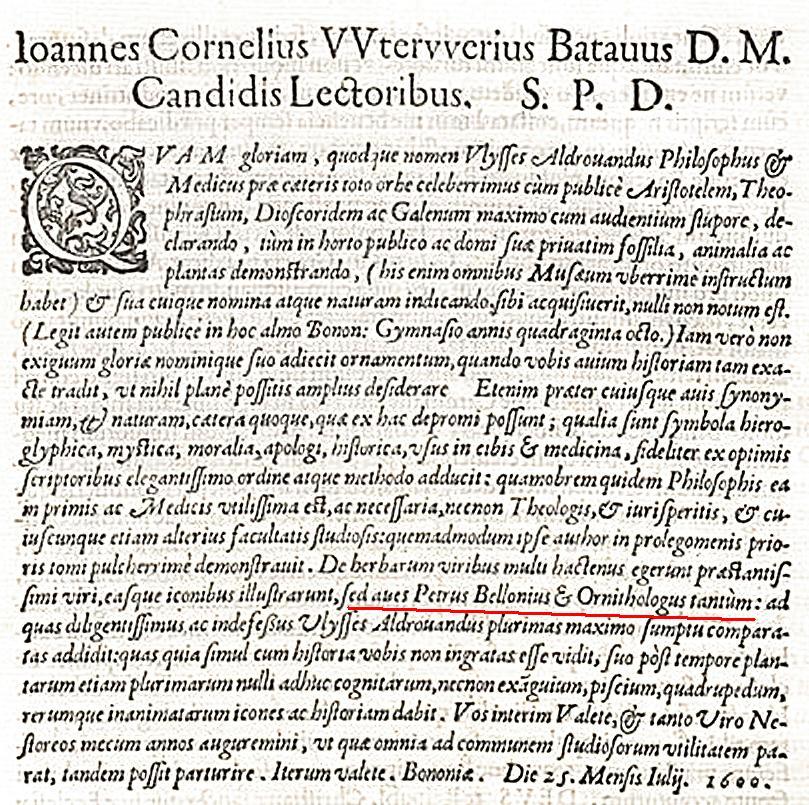 Ioannes Cornelius VVtervverius Batauus D. M.
Candidis Lectoribus. S. P. D.
QVAM gloriam, quodque nomen Vlysses Aldrouandus Philosophus &
Medicus præ cæteris toto orbe celeberrimus cùm publicè Aristotelem, Theo-
phrastum, Dioscoridem ac Galenum maximo cum audientium stupore, de-
clarando, tùm in horto publico ac domi suæ priuatim fossilia, animalia ac
plantas demonstrando, (his enim omnibus Musæum vberrimè instructum
habet) & sua cuique nomina atque naturam indicando, sibi acquisiuerit, nulli non notum est.
(Legit autem publicè in hoc almo Bonon: Gymnasio annis quadraginta octo.) Iam verò non
exiguum gloriæ nominique suo adiecit ornamentum, quando vobis auium historiam tam exa-
cte tradit, vt nihil planè possitis amplius desiderare Etenim præter cuiusque auis synony-
miam, & naturam, cætera quoque, quæ ex hac depromi possunt; qualia sunt symbola hiero-
glyphica, mystica, moralia, apologi, historica, vsus in cibis & medicina, fideliter ex optimis
scriptoribus elegantissimo ordine atque methodo adducit: quamobrem quidem Philosophis ea
in primis ac Medicis vtilissima est, ac necessaria, necnon Theologis, & iurisperitis, & cu-
iuscunque etiam alterius facultatis studiosis: quemadmodum ipse author in prolegomenis prio-
ris tomi pulcherrimè demonstrauit. De herbarum viribus multi hactenus egerunt præstantis-
simi viri, easque iconibus illustrarunt, sed aues Petrus Bellonius & Ornithologus tantùm: ad
quas diligentissimus, ac indefessus Vlysses Aldrouandus plurimas maximo sumptu compara-
tas addidit: quas quia simul cum historia vobis non ingratas esse vidit, suo pòst tempore plan-
tarum etiam plurimarum nulli adhuc cognitarum, necnon exãguium, piscium, quadrupedum,
rerumque inanimatarum icones ac historiam dabit. Vos interim Valete, & tanto Viro Ne-
storeos mecum annos auguremini, vt quæ omnia ad communem studiosorum vtilitatem pa-
rat, tandem possit parturire. Iterum valete. Bononiæ. Die 25. Mensis Iulij. 1600.